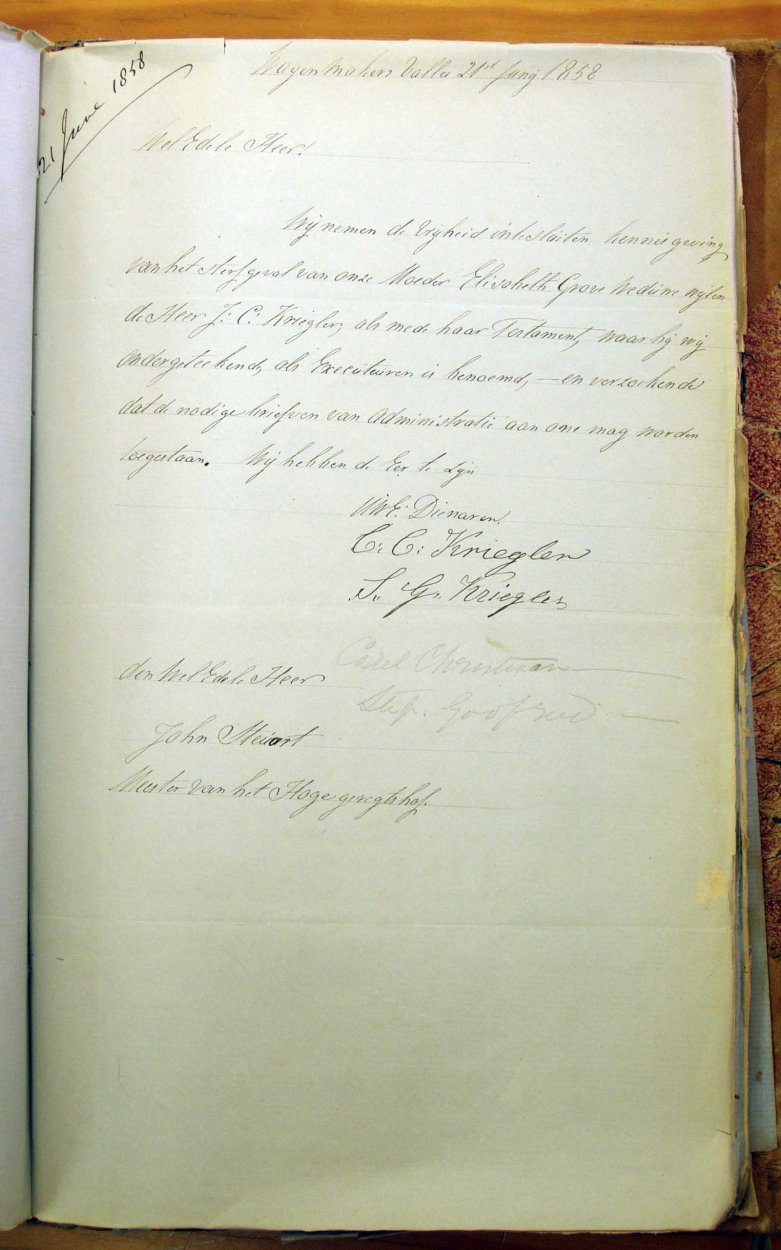 21 June 1858
Wagenmakers Vallei 21st Junij 1858
Wel Edele Heer!
Wij nemen de vryheid intesluiten kennisgeving
van het sterfgeval van onze Moeder Elisabeth Grove Weduwe wijlen
de Heer J: C. Kriegler, als mede haar Testament, waar bij wij
ondergeteekende, als Executeuren is benoemd, — en verzoekende
dat de nodige brieven van administratie aan ons mag worden
toegestaan. Wij hebben de Eer te zijn
UWE: Dienaren.
C: C: Kriegler
S. G. Kriegler
Carel Christiaan
Stef. Goofried
den Wel Edele Heer
John Steuart
Meester van het Hoge geregtshof.